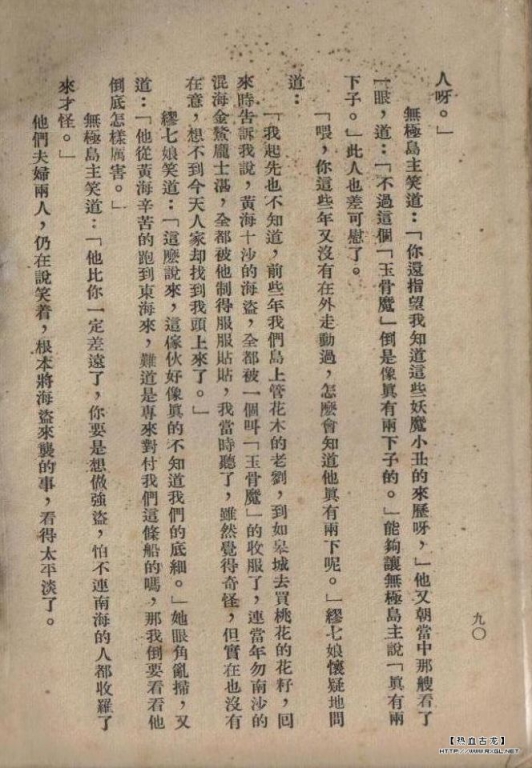 人呀。」
無極島主笑道：「你還指望我知道這些妖魔小丑的來歷呀，」他又朝當中那艘看了
一眼，道：「不過這個「玉骨魔」倒是像眞有兩下子的。」能夠讓無極島主說「眞有兩
下子。」此人也差可慰了。
「喂，你這些年又沒有在外走動過，怎麼會知道他眞有兩下呢。」繆七娘懷疑地問
道：
「我起先也不知道，前些年我們島上管花木的老劉，到如皋城去買桃花的花籽，囘
來時告訴我說，黃海十沙的海盜，全都被一個叫「玉骨魔」的收服了，連當年勿南沙的
混海金鰲龐士湛，全都被他制得服服貼貼，我當時聽了，雖然覺得奇怪，但實在也沒有
在意，想不到今天人家却找到我頭上來了。」
繆七娘笑道：「這麽說來，這傢伙好像眞的不知道我們的底細。」她眼角亂掃，又
道：「他從黃海辛苦的跑到東海來，難道是專來對付我們這條船的嗎，那我倒要看看他
倒底怎樣厲害。」
無極島主笑道：「他比你一定差遠了，你要是想做強盜，怕不連南海的人都收羅了
來才怪。」
他們夫婦兩人，仍在說笑着，根本將海盜來襲的事，看得太平淡了。
九〇
【热血古龙】
HTTP://WWW.RXGL.NET